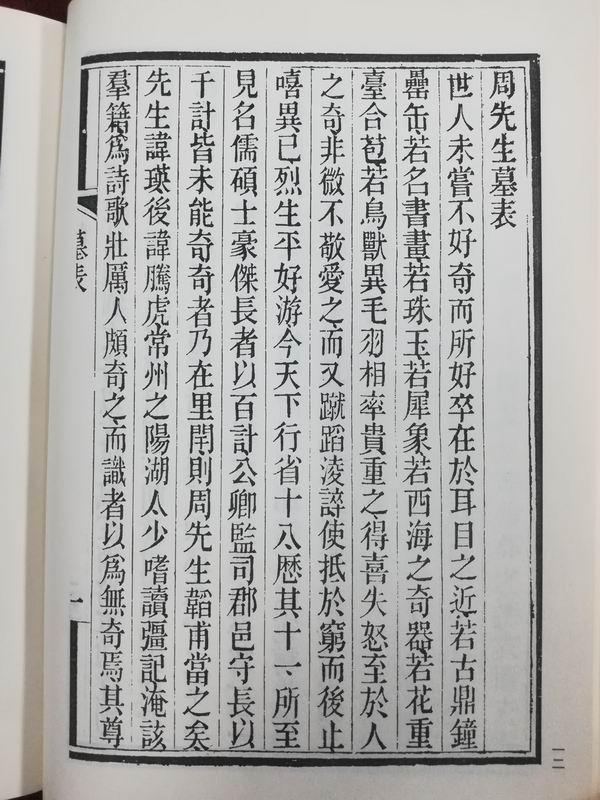 周先生墓表
世人未嘗不好奇而所好卒在於耳目之近若古鼎鐘
罍缶若名書畫若珠玉若犀象若西海之奇器若花重
臺合苞若鳥獸異毛羽相率貴重之得喜失怒至於人
之奇非微不敬愛之而又蹴蹈淩誶使抵於窮而後止
嘻異已烈生平好游今天下行省十八歷其十一所至
見名儒碩士豪傑長者以百計公卿監司郡邑守長以
千計皆未能奇奇者乃在里閈則周先生韜甫當之矣
先生諱瑛後諱騰虎常州之陽湖人少嗜讀彊記淹該
羣籍爲詩歌壯厲人頗奇之而識者以爲無奇焉其尊
墓表
一
一二